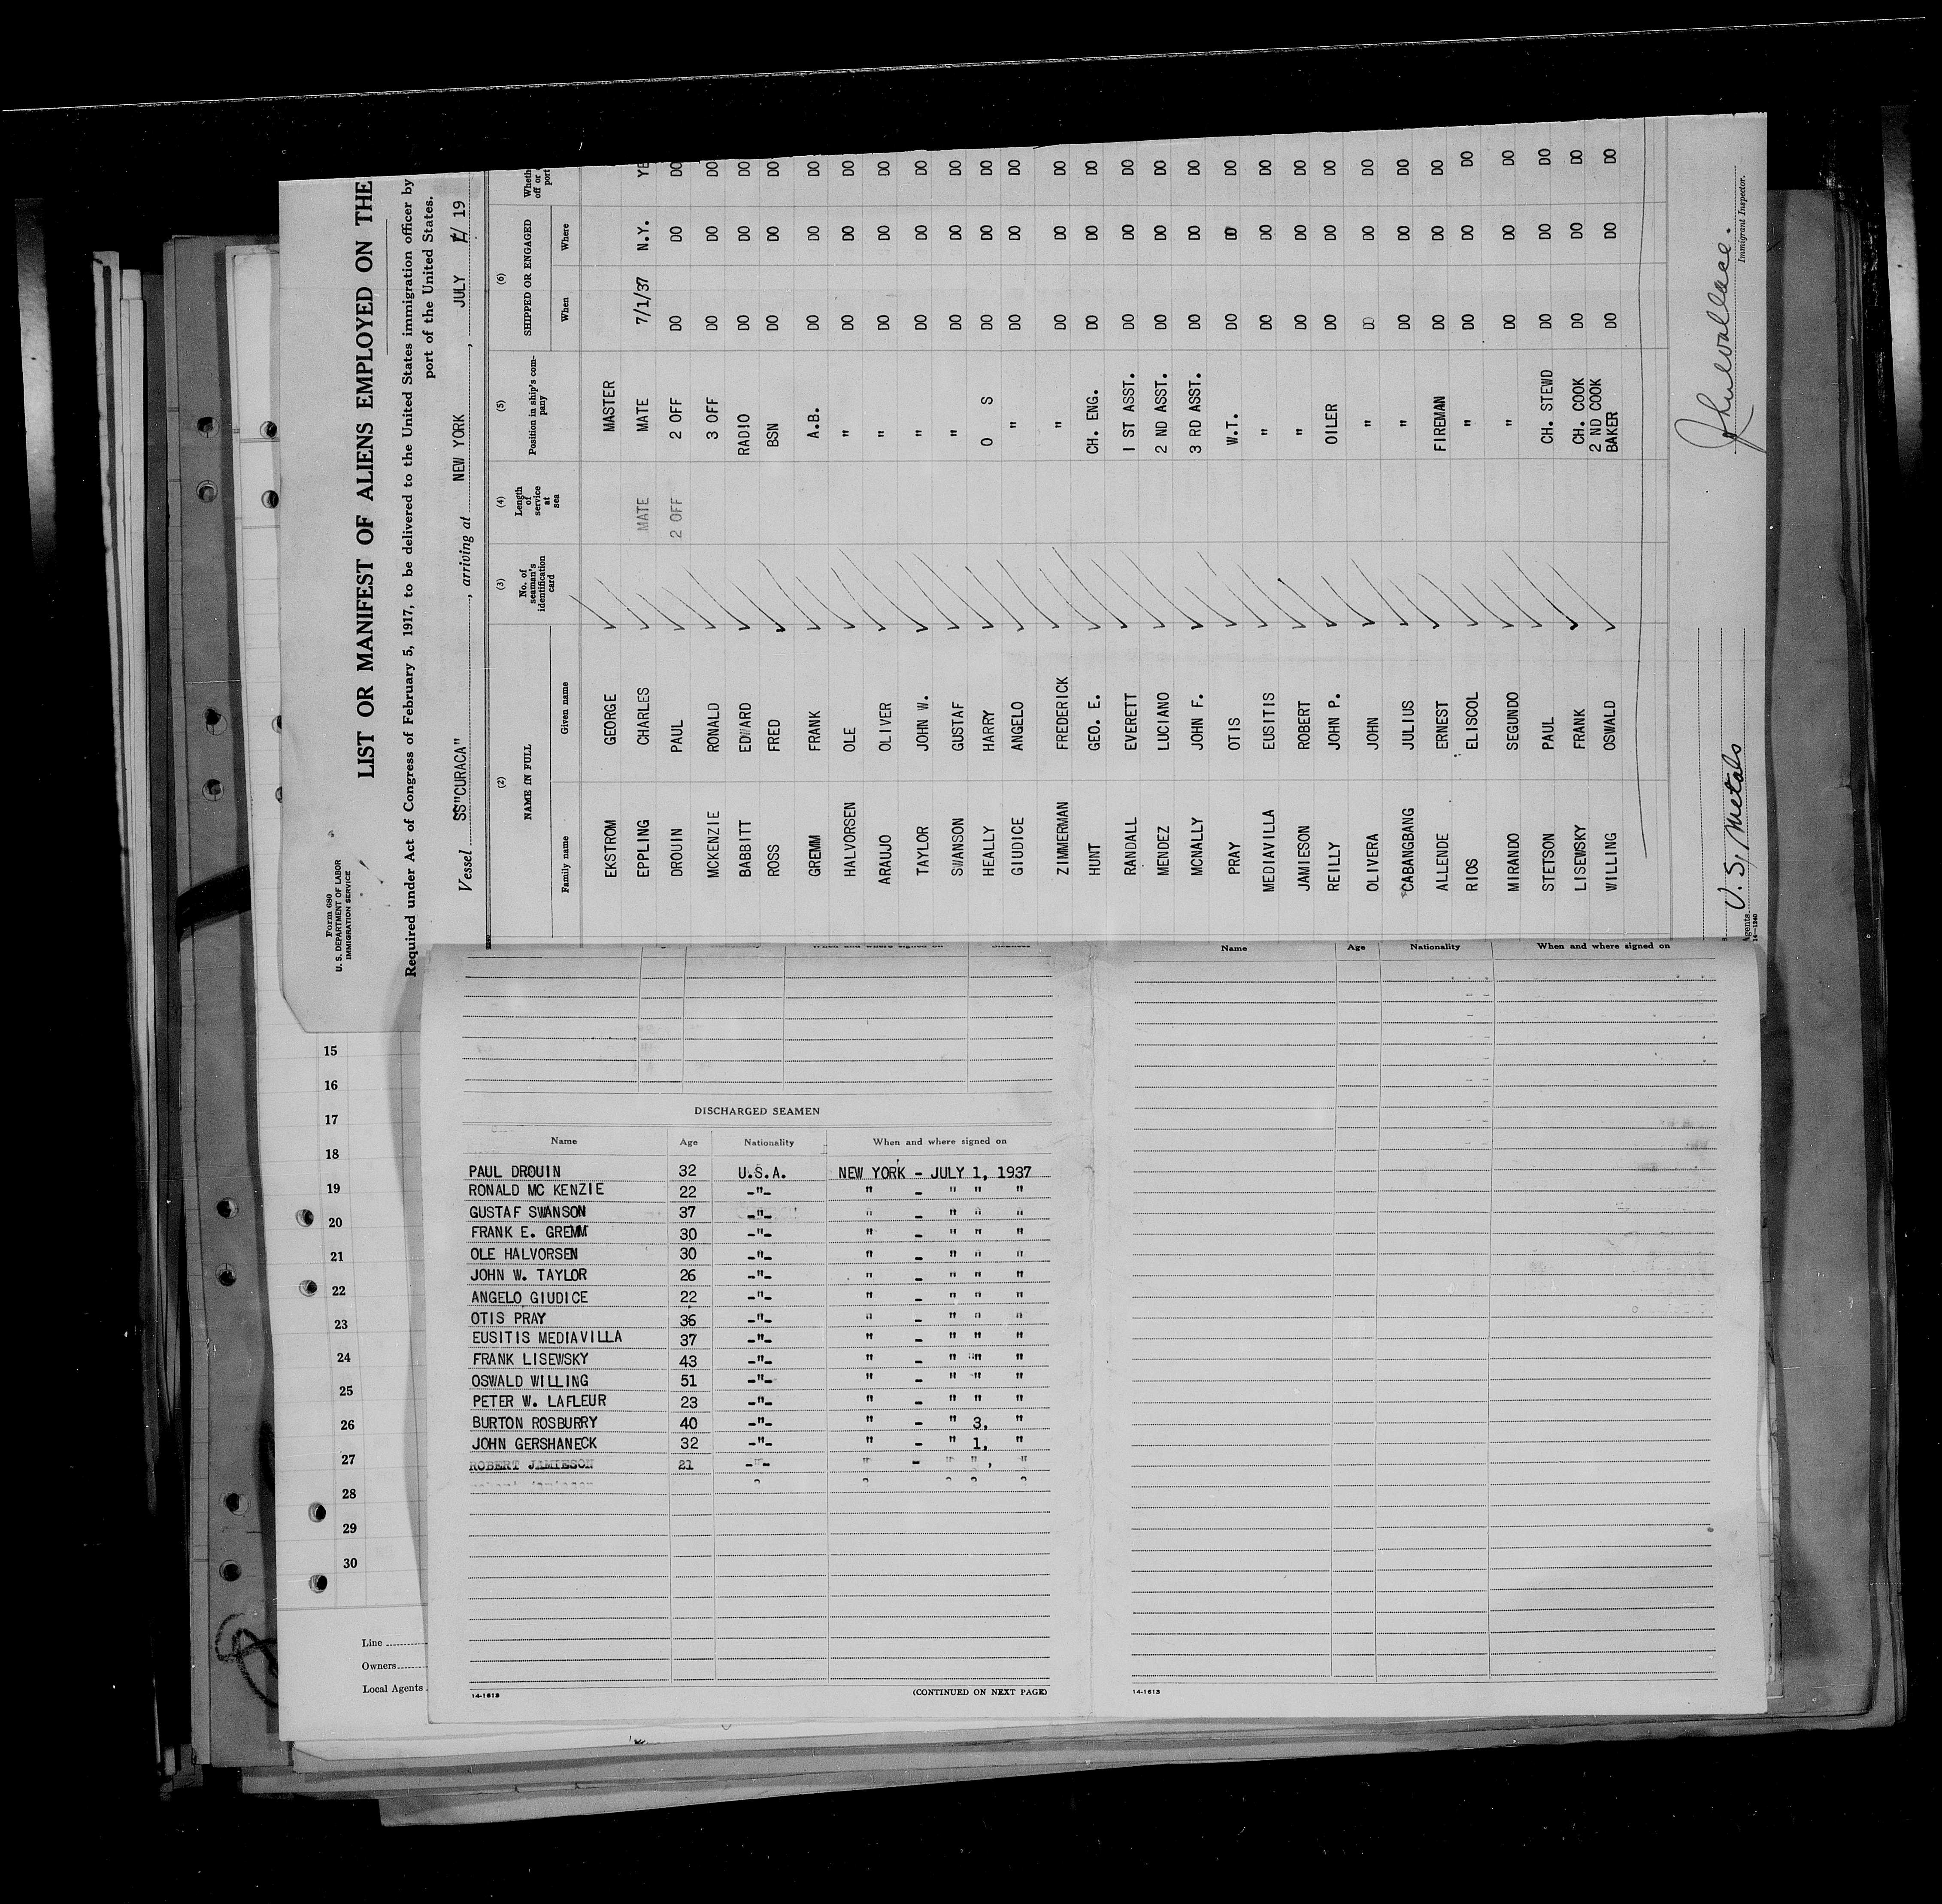 Form 680
U. S. DEPARTMENT OF LABOR
IMMIGRATION SERVICE
LIST OR MANIFEST OF ALIENS EMPLOYED ON THE
Required under Act of Congress of February 5, 1917, to be delivered to the United States immigration officer by
port of the United States.
Vessel SS"CURACA", arriving at NEW YORK, JULY 19
(2) (3) (4) (5) (6)
NAME IN FULL No. of seaman's identification card Length of service at sea Position in ship's company SHIPPED OR ENGAGED
Family name Given name When Where
EKSTROM GEORGE MASTER
EPPLING CHARLES MATE MATE 7/1/37 N.Y. YE
DROUIN PAUL 2 OFF 2 OFF DO DO DO
MCKENZIE RONALD 3 OFF DO DO DO
BABBITT EDWARD RADIO DO DO DO
ROSS FRED BSN DO DO DO
GREMM FRANK A.B. DO DO DO
HALVORSEN OLE " DO DO DO
ARAUJO OLIVER " DO DO DO
TAYLOR JOHN W. " DO DO DO
SWANSON GUSTAF " DO DO DO
HEALLY HARRY O S DO DO DO
GIUDICE ANGELO " DO DO DO
ZIMMERMAN FREDERICK " DO DO DO
HUNT GEO. E. CH. ENG. DO DO DO
RANDALL EVERETT 1 ST ASST. DO DO DO
MENDEZ LUCIANO 2 ND ASST. DO DO DO
MCNALLY JOHN F. 3 RD ASST. DO DO DO
PRAY OTIS W.T. DO DO DO
MEDIAVILLA EUSITIS " DO DO DO
JAMIESON ROBERT " DO DO DO
REILLY JOHN P. OILER DO DO DO
OLIVERA JOHN " DO DO DO
CABANGBANG JULIUS " DO DO DO
ALLENDE ERNEST FIREMAN DO DO DO
RIOS ELISCOL " DO DO DO
MIRANDO SEGUNDO " DO DO DO
STETSON PAUL CH. STEWD DO DO DO
LISEWSKY FRANK CH. COOK DO DO DO
WILLING OSWALD 2 ND COOK BAKER DO DO DO
U.S. Metals
Agents
14—1240
Immigrant Inspector.
Name Age Nationality When and where signed on
DISCHARGED SEAMEN
Name Age Nationality When and where signed on
PAUL DROUIN 32 U.S.A. NEW YORK - JULY 1, 1937
RONALD MC KENZIE 22 -"- " - " " "
GUSTAF SWANSON 37 -"- " - " " "
FRANK E. GREMM 30 -"- " - " " "
OLE HALVORSEN 30 -"- " - " " "
JOHN W. TAYLOR 26 -"- " - " " "
ANGELO GIUDICE 22 -"- " - " " "
OTIS PRAY 36 -"- " - " " "
EUSITIS MEDIAVILLA 37 -"- " - " " "
FRANK LISEWSKY 43 -"- " - " " "
OSWALD WILLING 51 -"- " - " " "
PETER W. LAFLEUR 23 -"- " - " " "
BURTON ROSBURRY 40 -"- " - " 3, "
JOHN GERSHANECK 32 -"- " - " 1, "
ROBERT JAMIESON 21 -"- " - " ", "
14-1613
(CONTINUED ON NEXT PAGE)
14-1613
15
16
17
18
19
20
21
22
23
24
25
26
27
28
29
30
Line
Owners
Local Agents